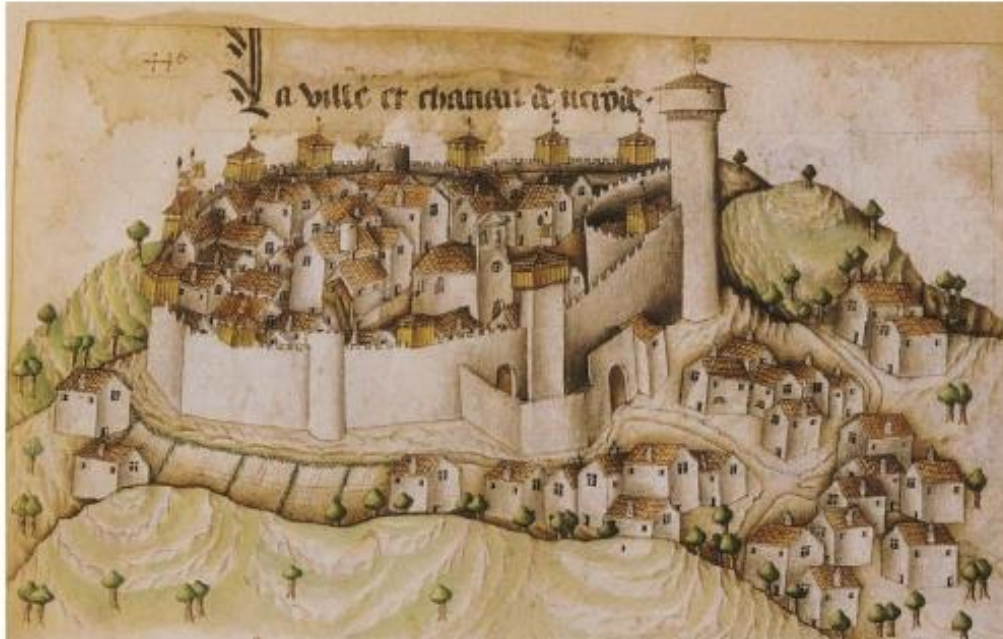 446
La ville et chatiau de nerõde